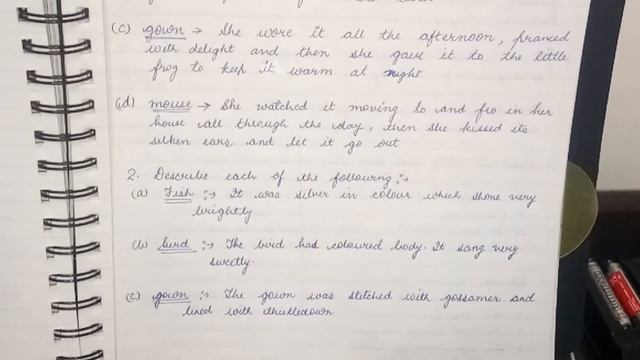 (c) gown → She wore it all the afternoon, pranced
with delight and then she gave it to the little
frog to keep it warm at night
(d) mouse → She watched it moving to and fro in her
house all through the day, then she kissed its
silken ears and let it go out
2. Describe each of the following :→
(a) Fish :→ It was silver in colour which shone very
brightly
(b) bird :→ The bird had coloured body. It sang very
sweetly.
(c) gown :- The gown was stitched with gossamer and
lined with thistledown